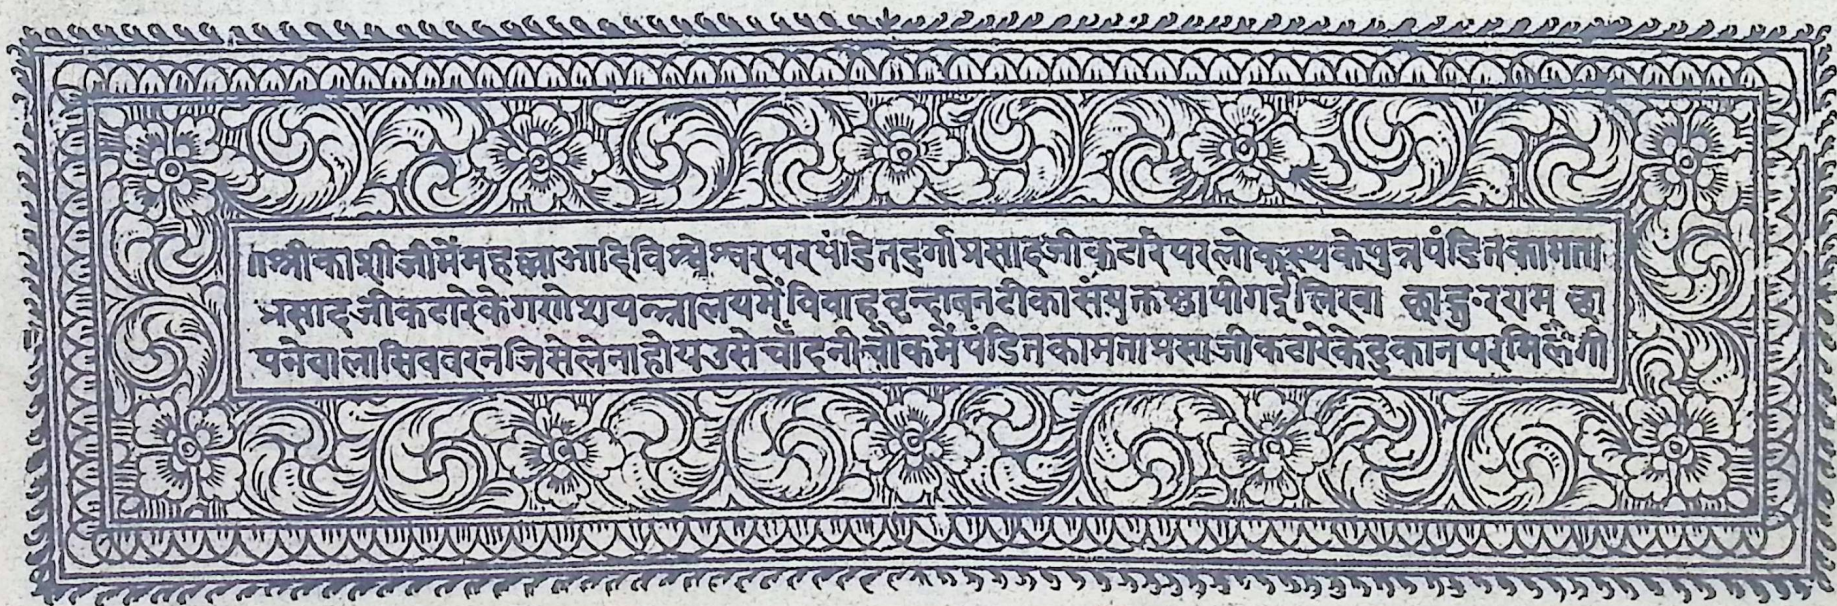 ॥श्रीकाशीजीमेंमहल्लाआदिविश्वेश्वरपरपंडितदुर्गाप्रसादजीकटारेपरलोकस्थकेपुत्रपंडितकामता
प्रसादजीकटारेकेगणेशयन्त्रालयमेंविवाहवृन्दाबनटीकासंयुक्तछापीगईलिखा छाङ्गुरराम छा
पनेवालासिववरनजिसेलेनाहोयउसेचाँदनीचौकमेंपंडितकामताप्रसाजीकटारेकेदुकानपरमिलैगी